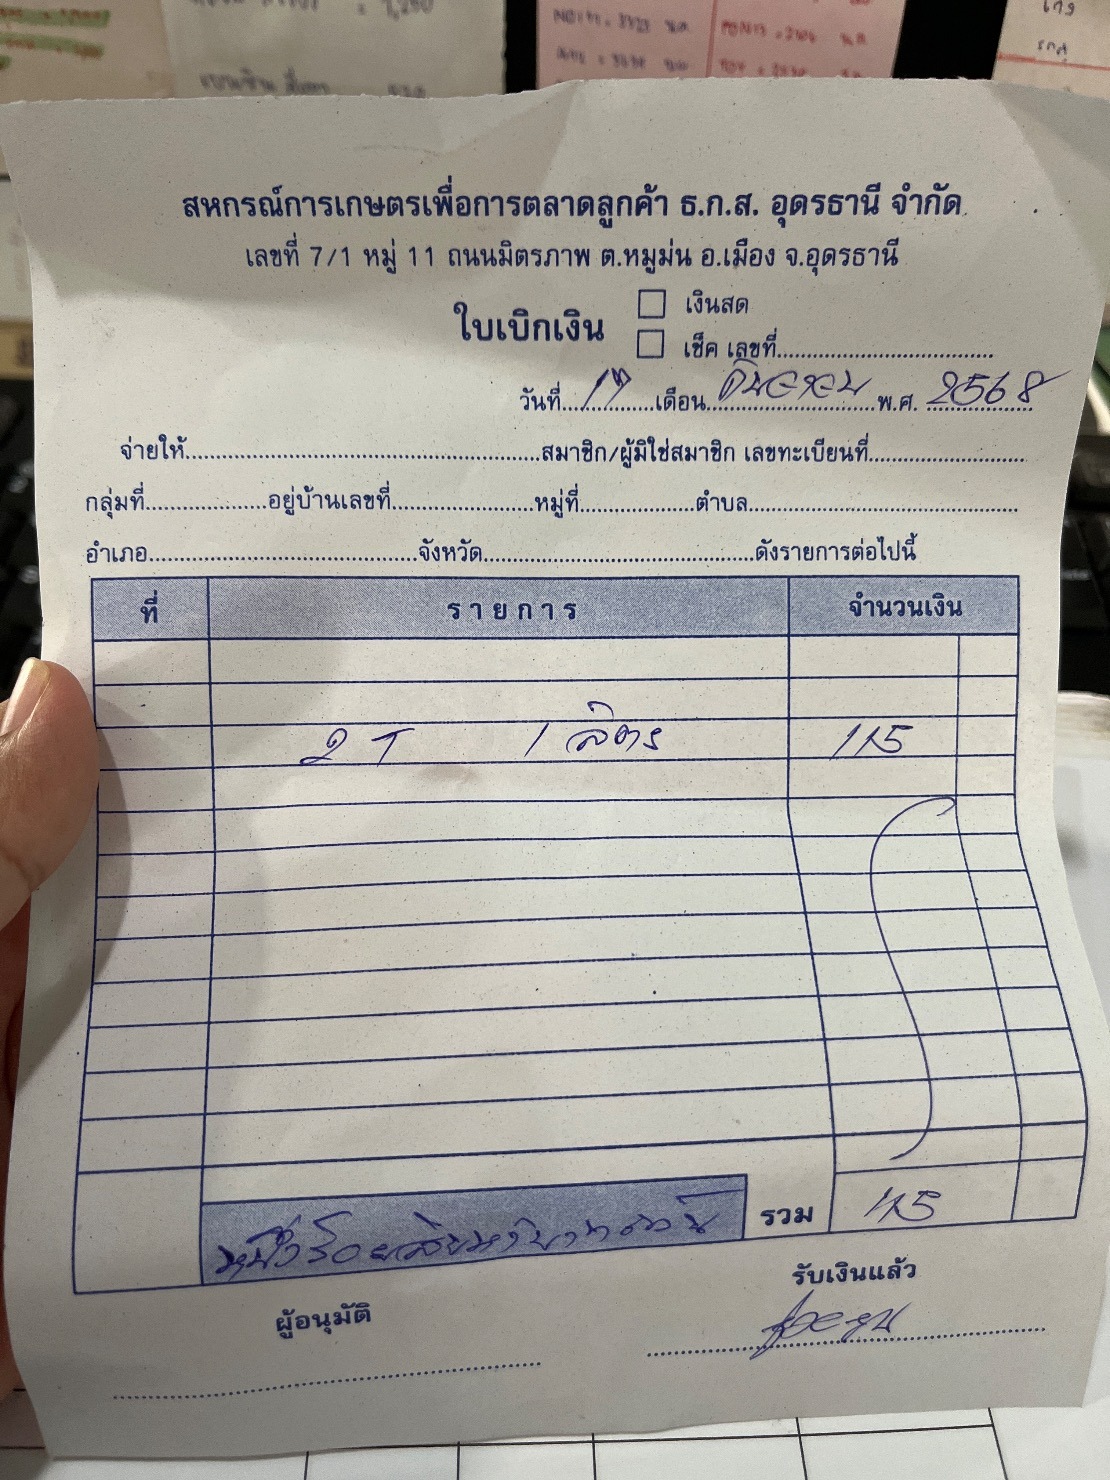 สหกรณ์การเกษตรเพื่อการตลาดลูกค้า ธ.ก.ส. อุดรธานี จำกัด
เลขที่ 7/1 หมู่ 11 ถนนมิตรภาพ ต.หมูม่น อ.เมือง จ.อุดรธานี
ใบเบิกเงิน
เงินสด
เช็ค เลขที่
วันที่ 17 เดือน ธันวาคม พ.ศ. 2568
จ่ายให้ สมาชิก/ผู้มิใช่สมาชิก เลขทะเบียนที่
กลุ่มที่ อยู่บ้านเลขที่ หมู่ที่ ตำบล
อำเภอ จังหวัด ดังรายการต่อไปนี้
ที่ รายการ จำนวนเงิน
2 T 1 ลิตร 115
หนึ่งร้อยสิบห้าบาทถ้วน รวม 115
ผู้อนุมัติ รับเงินแล้ว